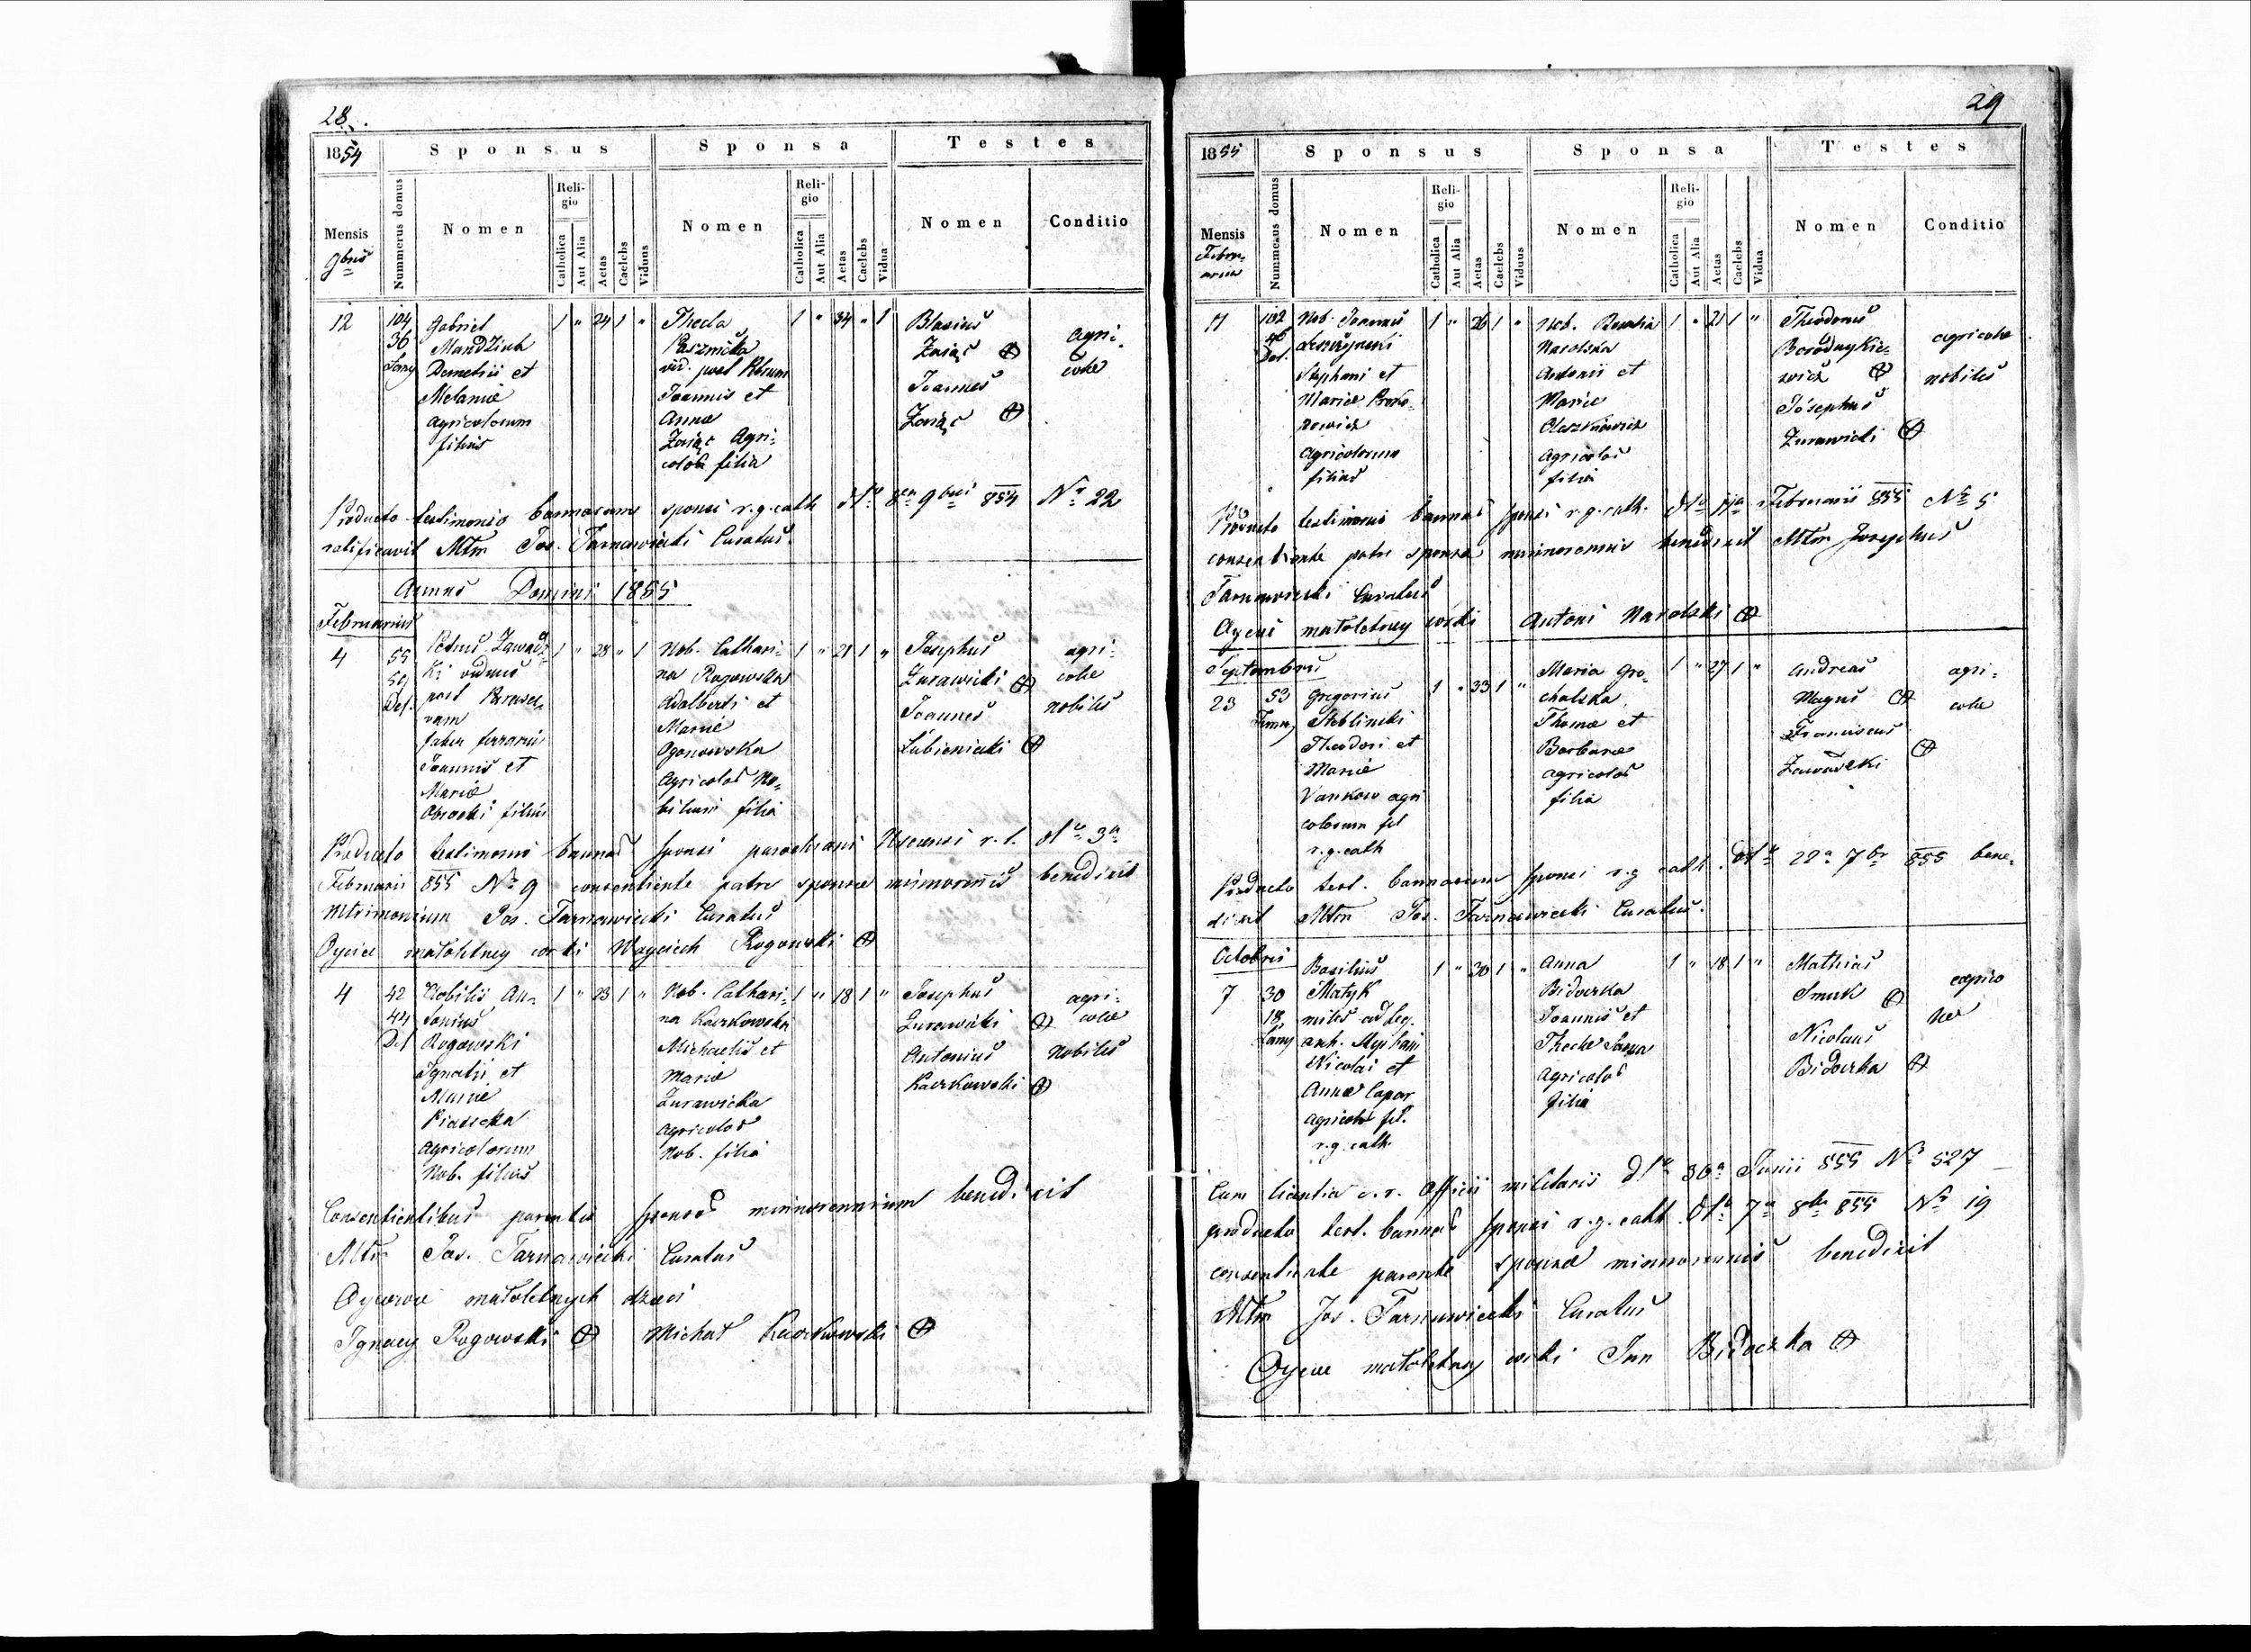 28.
1854
Sponsus
Sponsa
Testes
Mensis
9bris
Nummerus domus
Nomen
Religio
Catholica
Aut Alia
Aetas
Caelebs
Viduus
Nomen
Religio
Catholica
Aut Alia
Aetas
Caelebs
Vidua
Nomen
Conditio
12
104
36
Łany
Gabriel
Mandziuk
Demetrii et
Melaniæ
agricolarum
filius
1 " 24 1 "
Thecla
vid. post
Joannis et
Annæ
Zając Agri-
colar filia
1 " 34 " 1
Blasius
Zając
Joannes
Zając
agri-
colæ
Producto testimonio bannorum sponsi r.g.cath dto 8a 9bris 854 Nr 22
ratificavit Mtm Jos. Tarnawiecki Curatus
Annus Domini 1855
Februarius
4
55
59
Def.
Petrus Zawadz-
ki viduus
post
faber ferrarius
Joannis et
Mariæ
filius
1 " 28 " 1
Nob. Cathari-
na Rogowska
Adalberti et
Mariæ
Ogonowska
Agricolar No-
bilium filia
1 " 21 1 "
Josephus
Zurawicki
Joannes
Łubieniecki
agri-
colæ
nobiles
Producto testimonio bannor sponsi parochiani r. l. dto 3a
Februarii 855 Nr 9 consentiente patre sponsæ minorennis benedixit
Mtrimonium Jos. Tarnawiecki Curatus
Oyciec małoletney corki Woyciech Rogowski
4
42
44
Def
Nobilis An-
tonius
Rogowski
Ignatii et
Mariæ
Piasecka
agricolarum
Nob. filius
1 " 23 1 "
Nob. Cathari-
na Kaczkowska
Michaelis et
Mariæ
Zurawicka
Agricolar
Nob. filia
1 " 18 1 "
Josephus
Zurawicki
Antonius
Kaczkowski
agri-
colæ
Nobiles
Consentientibus parentibus sponsor minorennium benedixit
Mtm Jos. Tarnawiecki Curatus
Oycowie małoletnych dzieci
Ignacy Rogowski Michał Kaczkowski
29
1855
Sponsus
Sponsa
Testes
Mensis
Febru-
arius
Nummerus domus
Nomen
Religio
Catholica
Aut Alia
Aetas
Caelebs
Viduus
Nomen
Religio
Catholica
Aut Alia
Aetas
Caelebs
Vidua
Nomen
Conditio
11
102
46
Def.
Nob. Joannes
Leszczynski
Stephani et
Mariæ Proko-
powicz
agricolarum
filius
1 " 26 1 "
Nob. Rosalia
Narolska
Antonii et
Mariæ
Agricolar
filia
1 " 21 1 "
Theodorus
Borodaykie-
wicz
Josephus
Zurawicki
agricolæ
nobiles
Producto testimonio bannor sponsi r.g.cath. dto 11a Februarii 855 Nr 5
consentiente patre sponsæ minorennis benedixit Mtm Josephus
Tarnawiecki Curatus
Oyciec małoletney corki Antoni Narolski
Septembris
23
53
Gregorius
Steblinski
Theodori et
Mariæ
Vankow agri
colarum fil
r.g.cath
1 " 33 1 "
Maria Gro-
chalska
Thomæ et
Barbaræ
agricolar
filia
1 " 27 1 "
Andreas
Magus
Franciscus
Zawadzki
agri-
colæ
Producto test. bannorum sponsi r.g cath. dto 22a 7br 855 bene-
dixit Mtm Jos. Tarnawiecki Curatus.
Octobris
7
30
18
Łany
Basilius
Matyk
miles ad Leg.
arch. Stephani
Nicolai et
Annæ Capar
agricolar fil.
r.g.cath.
1 " 30 1 "
Anna
Bidaczka
Joannis et
Theclæ
Agricolar
filia
1 " 18 1 "
Mathias
Smuk
Nicolaus
Bidaczka
agrico
læ
Cum licentia c.r. Officii militaris dto 30a Junii 855 Nr 527
producto test. bannor sponsi r.g.cath. dto 7a 8bris 855 Nr 19
consentiente parente sponsæ minorennis benedixit
Mtm Jos. Tarnawiecki Curatus
Oyciec małoletney corki Jan Bidaczka